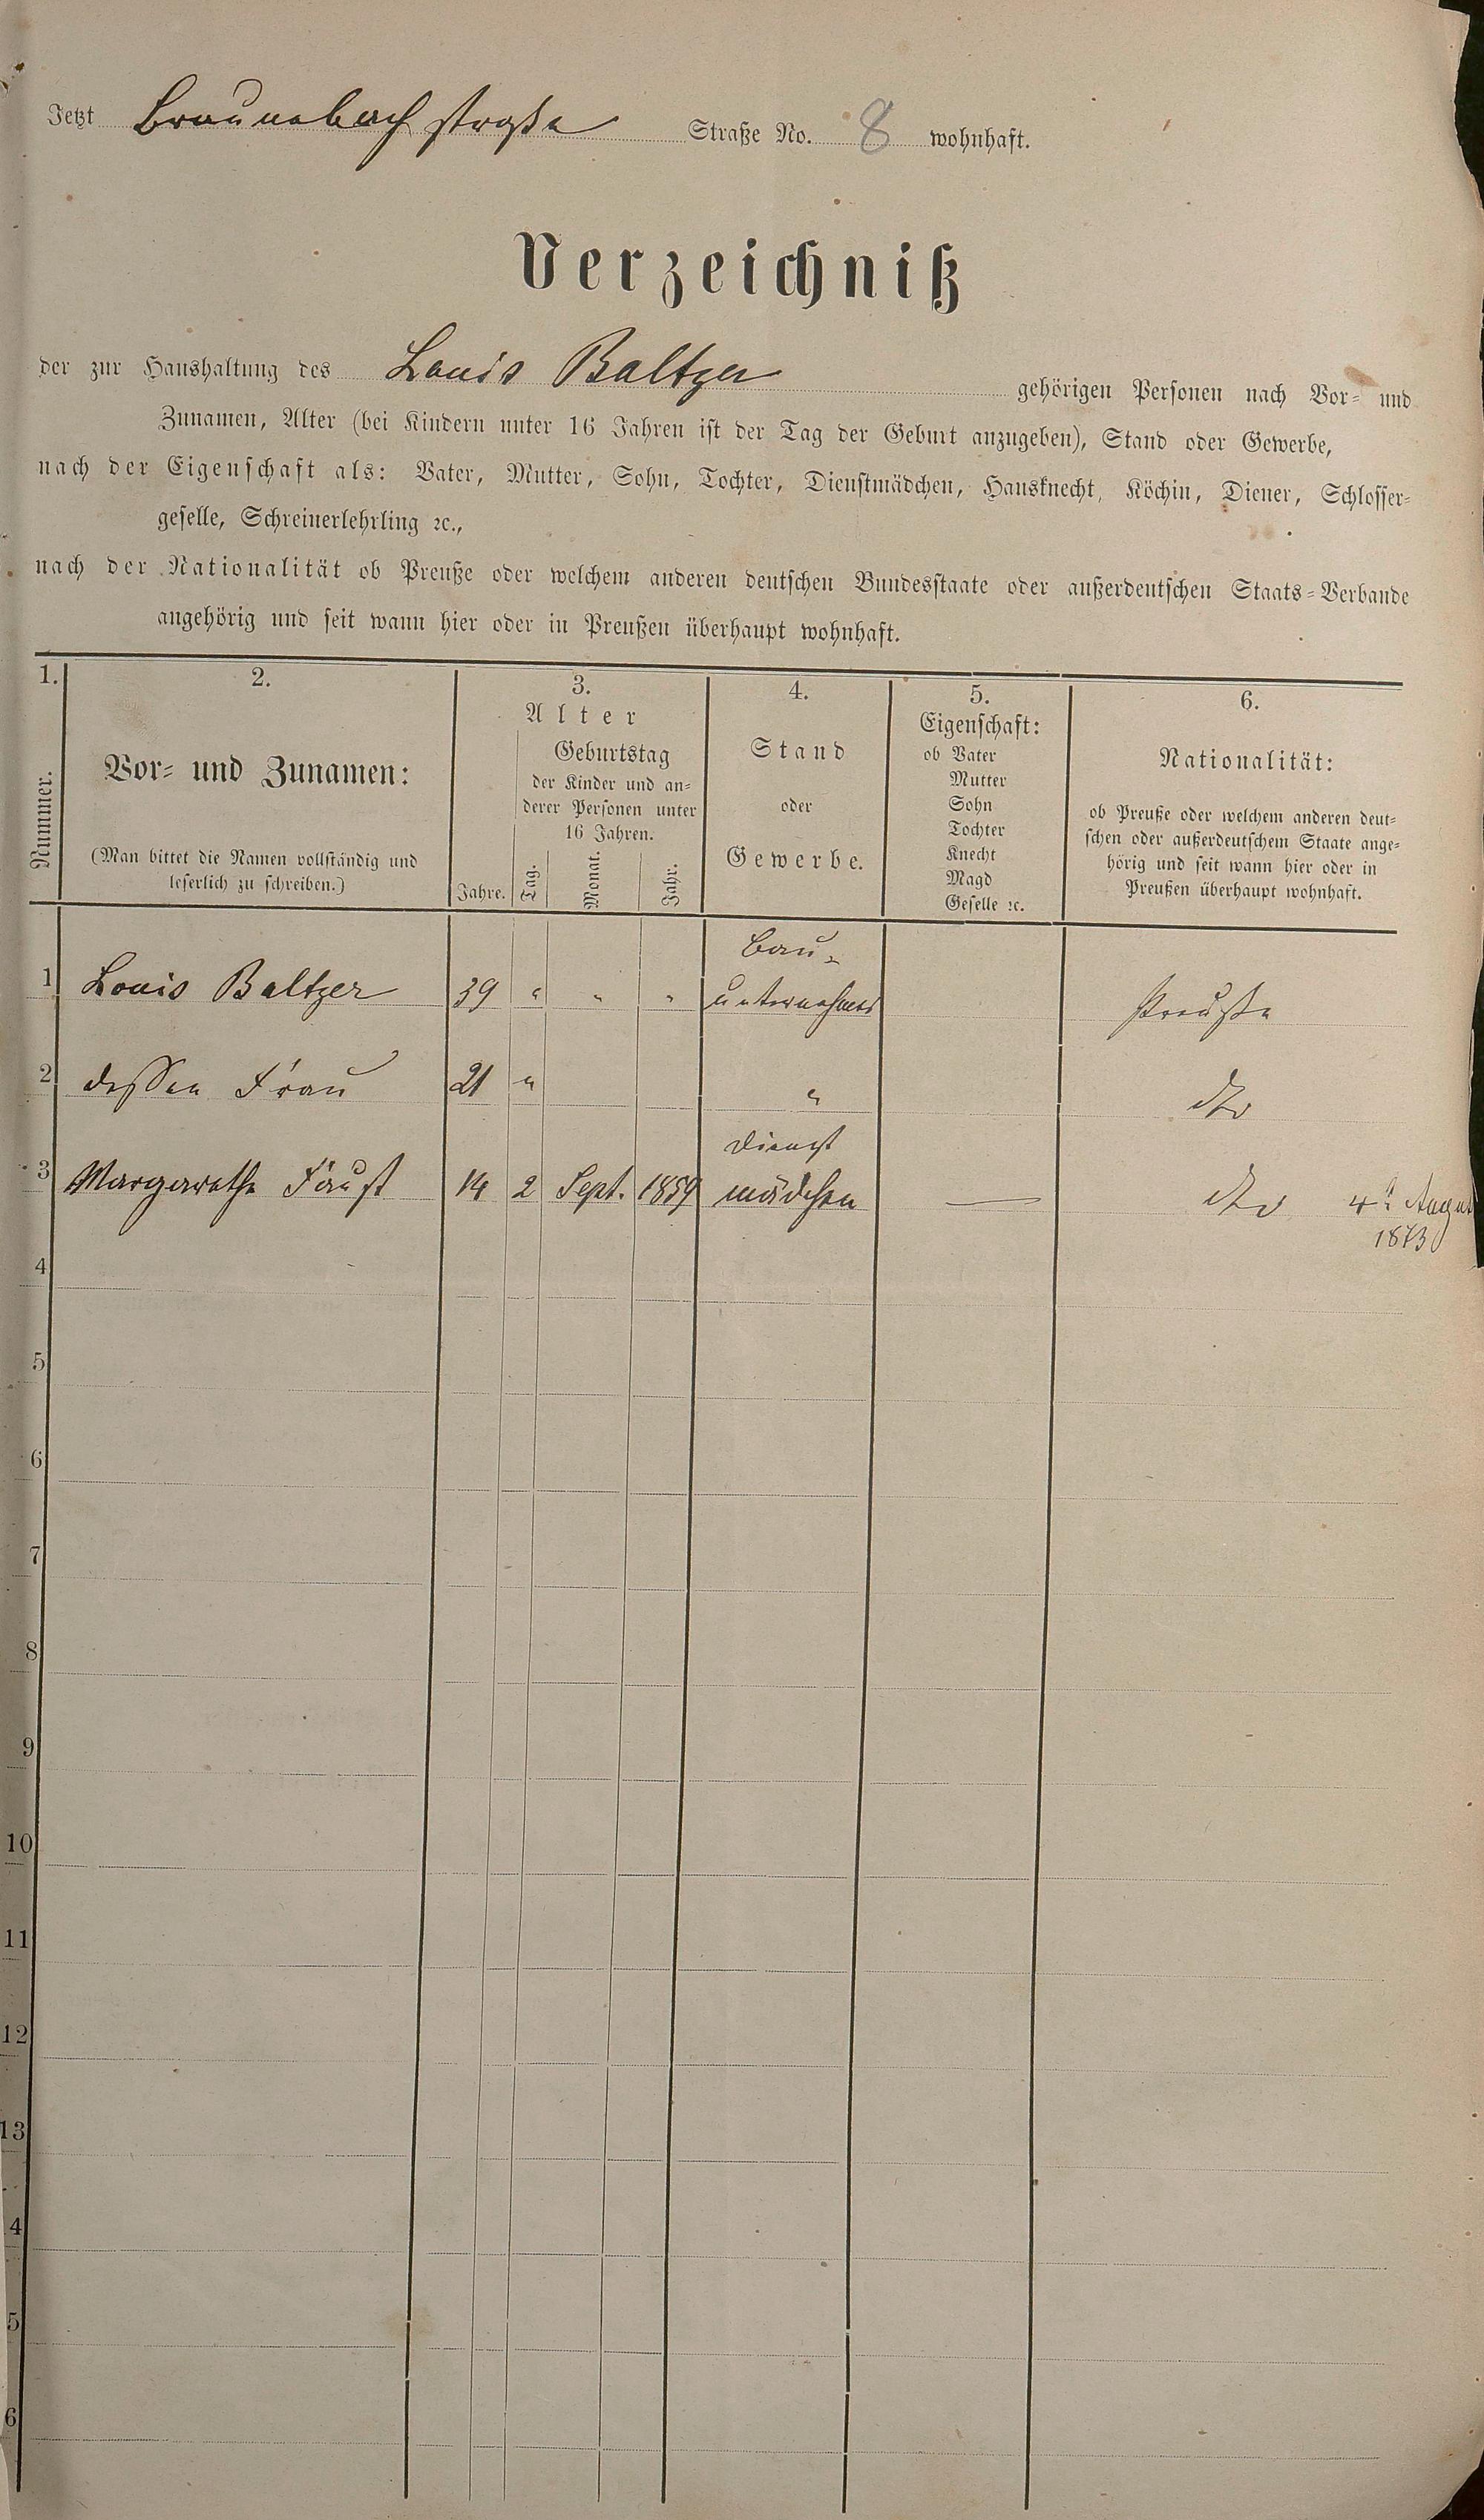 Jetzt Braunebach straße Straße No. 8 wohnhaft.
Verzeichniß
der zur Haushaltung des Louis Baltzer gehörigen Personen nach Vor- und
Zunamen, Alter (bei Kindern unter 16 Jahren ist der Tag der Geburt anzugeben), Stand oder Gewerbe,
nach der Eigenschaft als: Vater, Mutter, Sohn, Tochter, Dienstmädchen, Hausknecht, Köchin, Diener, Schlosser-
geselle, Schreinerlehrling ꝛc.,
nach der Nationalität ob Preuße oder welchem anderen deutschen Bundesstaate oder außerdeutschen Staats-Verbande
angehörig und seit wann hier oder in Preußen überhaupt wohnhaft.
1. 2. 3. 4. 5. 6.
Nummer.
Vor- und Zunamen:
(Man bittet die Namen vollständig und
leserlich zu schreiben.)
Alter
Geburtstag
der Kinder und an-
derer Personen unter
16 Jahren.
Jahre. Tag. Monat. Jahr.
Stand
oder
Gewerbe.
Eigenschaft:
ob Vater
Mutter
Sohn
Tochter
Knecht
Magd
Geselle ꝛc.
Nationalität:
ob Preuße oder welchem anderen deut-
schen oder außerdeutschem Staate ange-
hörig und seit wann hier oder in
Preußen überhaupt wohnhaft.
Bau-
1 Louis Baltzer 39 " " " unternehmer Preuße
2 dessen Frau 21 " " dto
Dienst
3 Margarethe Faust 14 2 Sept. 1859 mädchen — dto 4t August
1873
4
5
6
7
8
9
10
11
12
13
4
5
6